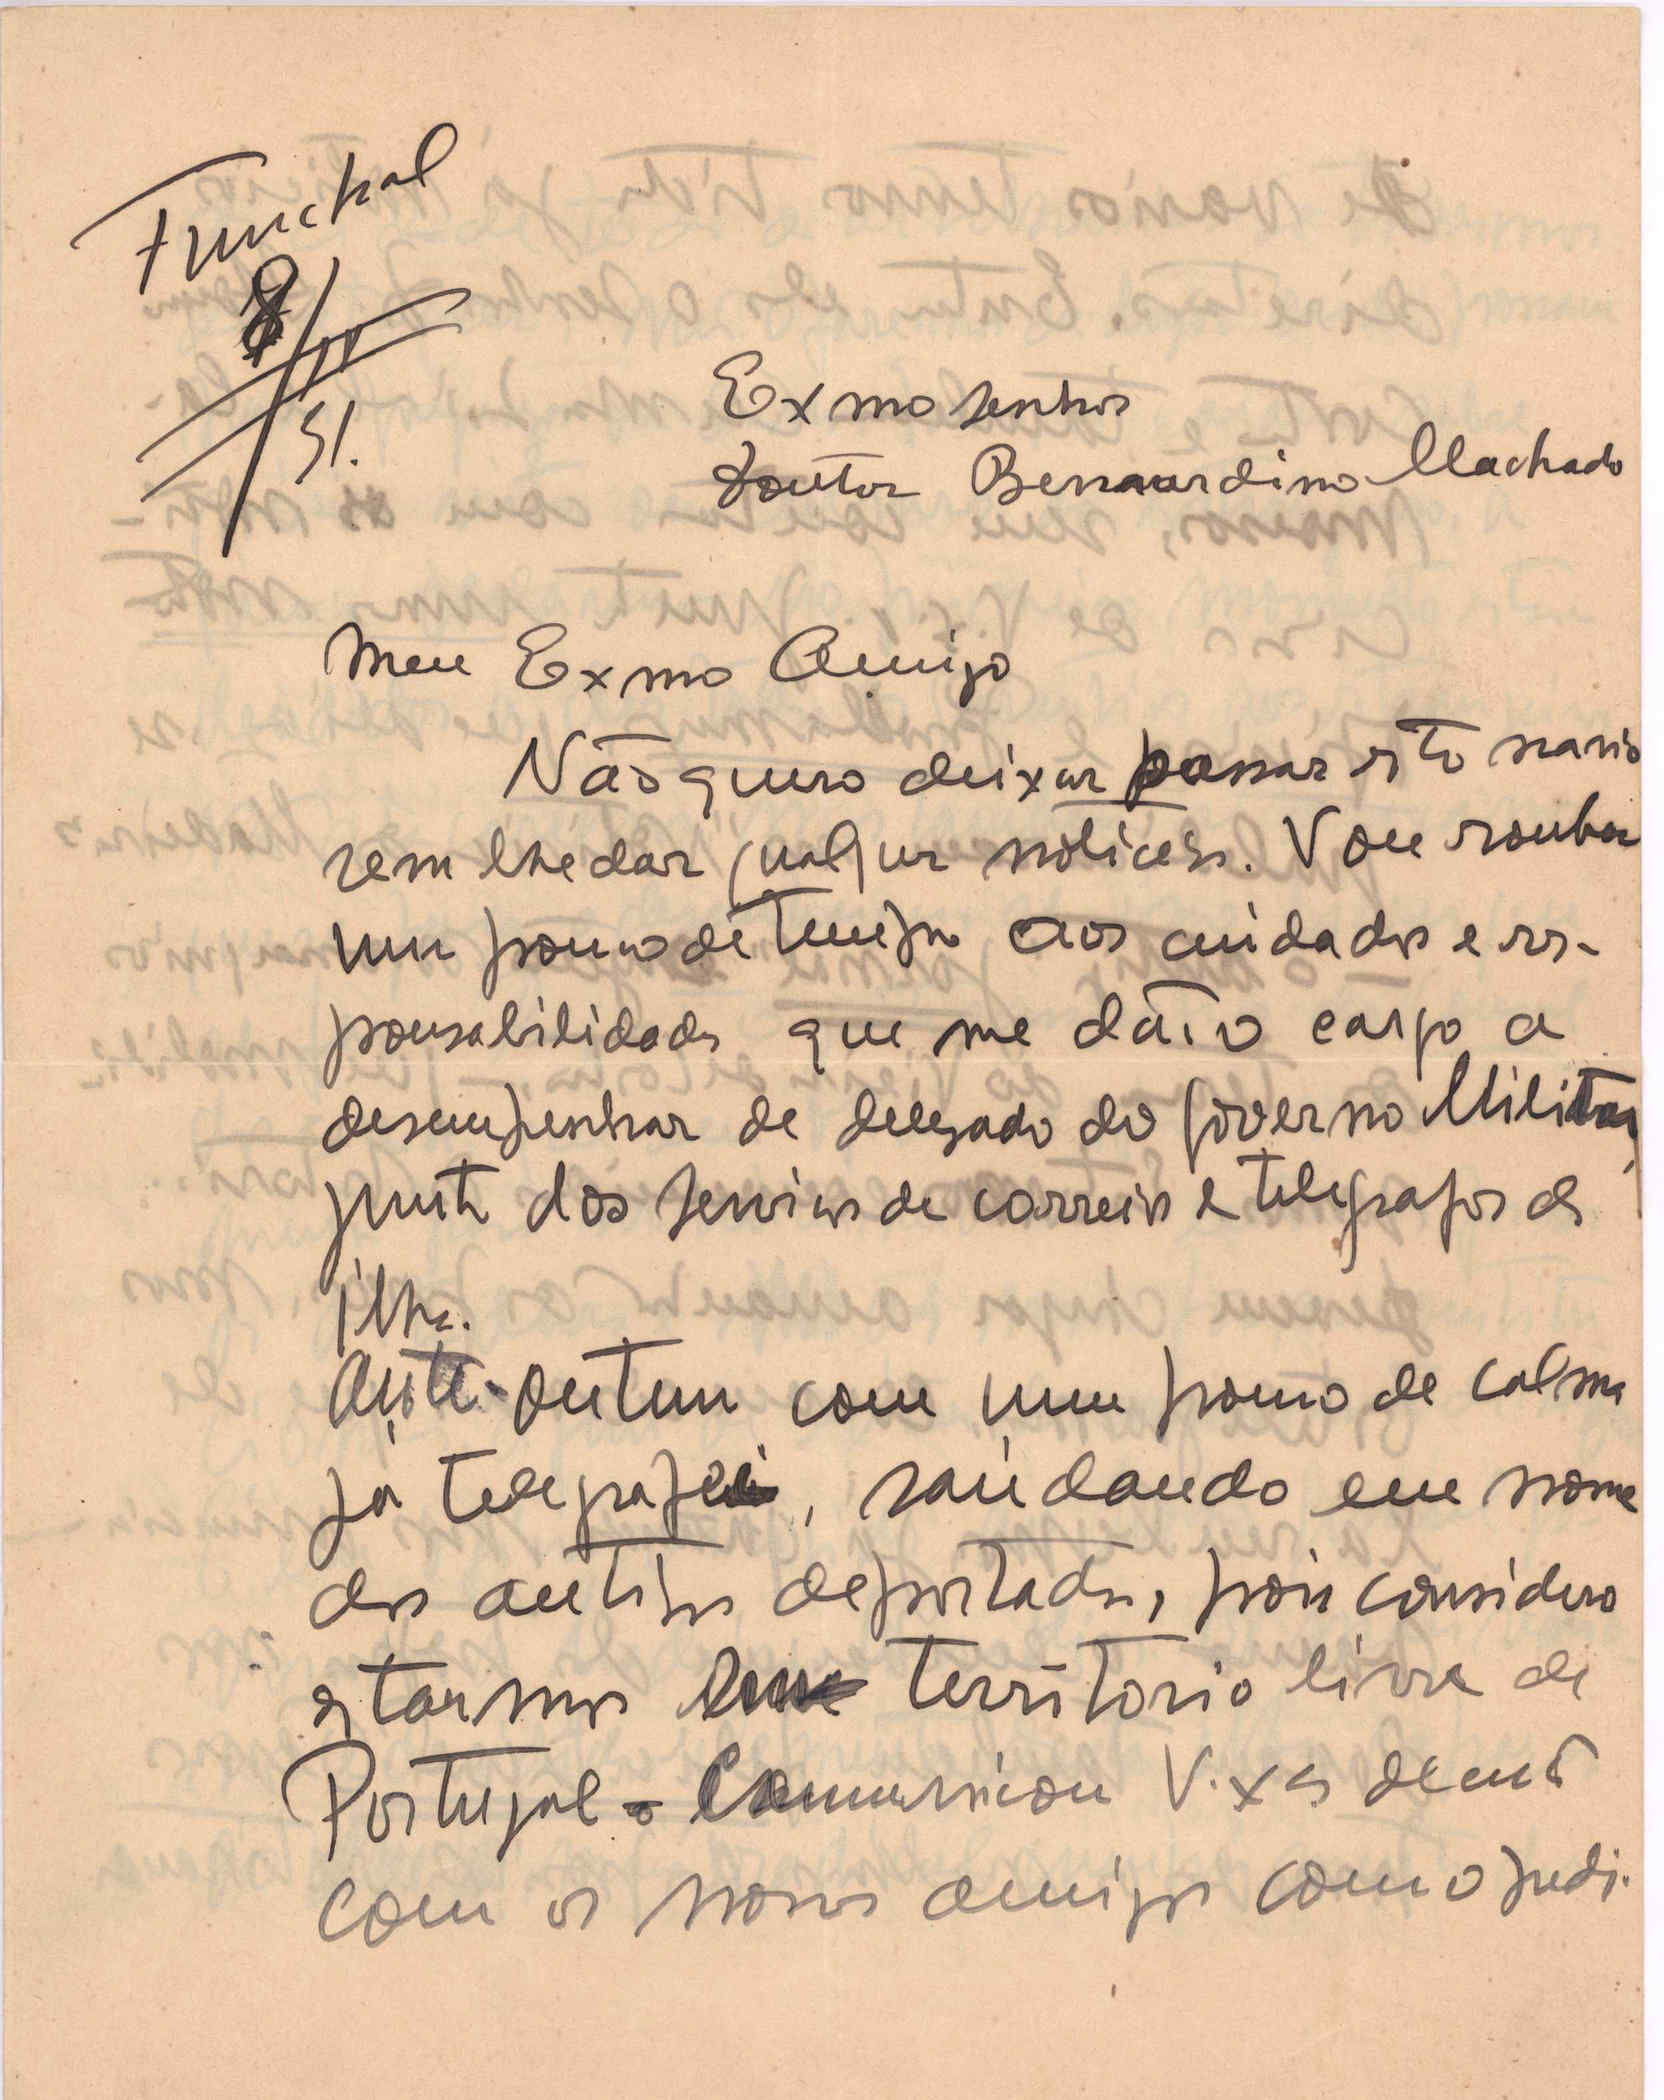 Funchal
8/IV
31.
Exmo Senhor
Doutor Bernardino Machado
Meu Exmo Amigo
Não quero deixar passar este navio
sem lhe dar qualquer noticias. Vou roubar
um pouco de tempo aos cuidados e res-
ponsabilidades que me dá o cargo a
desempenhar de delegado do Governo Militar,
junto dos serviços de correios e telegrafos da
ilha.
Ante-ontem com um pouco de calma
já telegrafei, saúdando em nome
dos antigos deportados, pois considero
estarmos em territorio livre de
Portugal - V. Exa
com os nossos amigos como pedi.